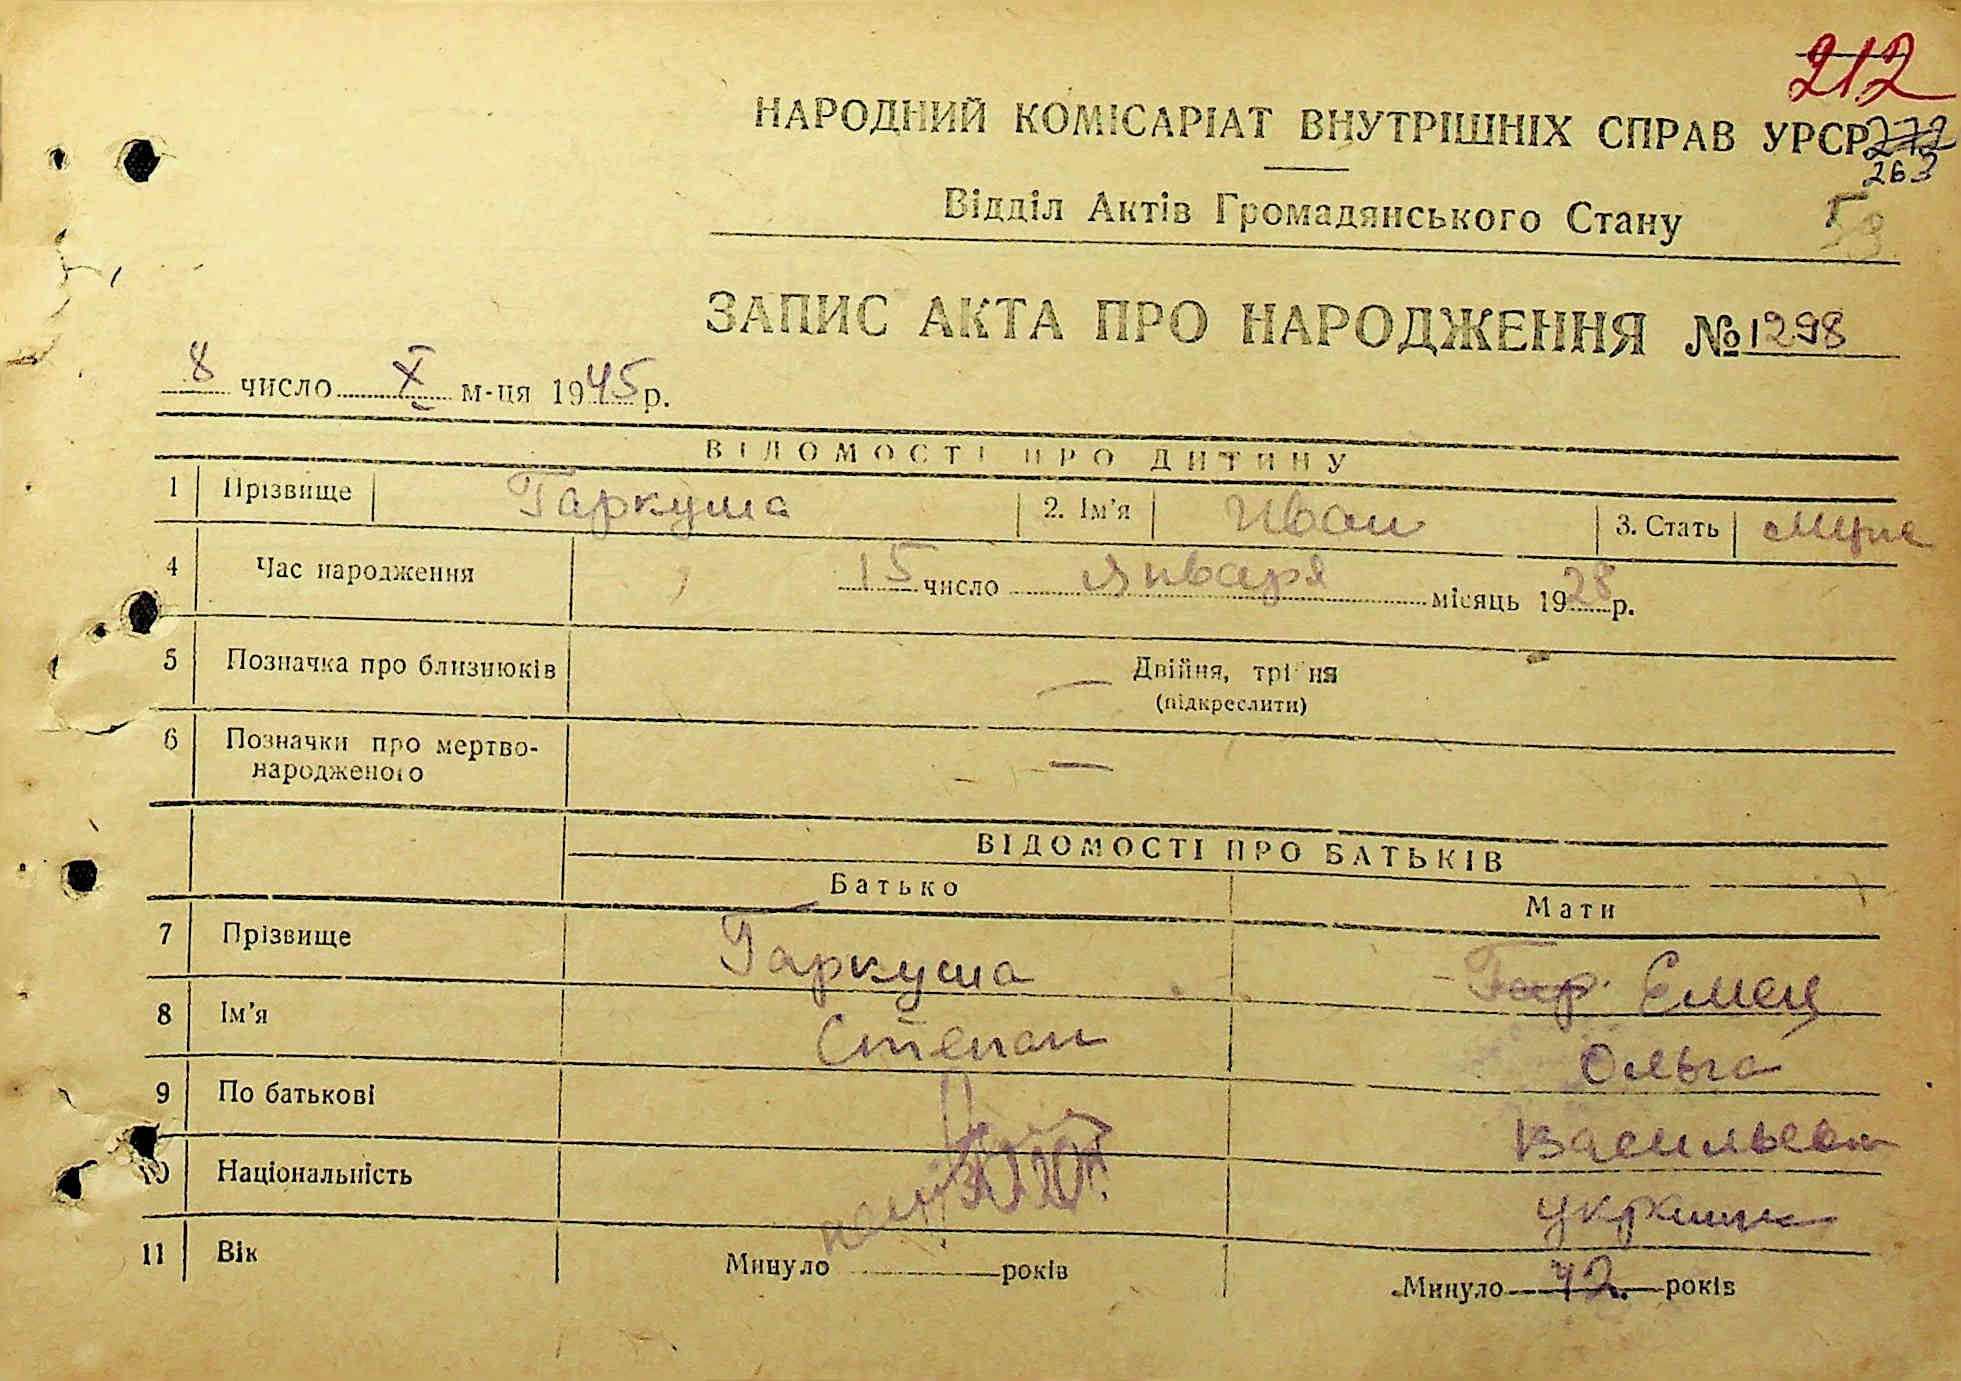 212
НАРОДНИЙ КОМІСАРІАТ ВНУТРІШНІХ СПРАВ УРСР 272
263
Відділ Актів Громадянського Стану 59
ЗАПИС АКТА ПРО НАРОДЖЕННЯ № 1298
8 число X м-ця 1945 р.
ВІДОМОСТІ ПРО ДИТИНУ
1 Прізвище Гаркуша 2. Ім'я Иван 3. Стать
4 Час народження 15 число Января місяць 1928 р.
5 Позначка про близнюків Двійня, трійня
(підкреслити)
6 Позначки про мертво-
народженого —
ВІДОМОСТІ ПРО БАТЬКІВ
Батько Мати
7 Прізвище Гаркуша Гар. Емец
8 Ім'я Степан Ольга
9 По батькові Васильевн
10 Національність
11 Вік Минуло років Минуло 42 років